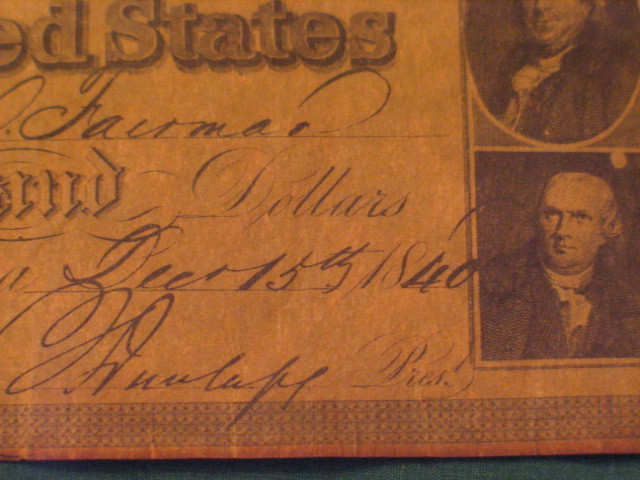 ed States
. Fairman
and Dollars
a Decr 15th 1840
Dunlap Pres.t